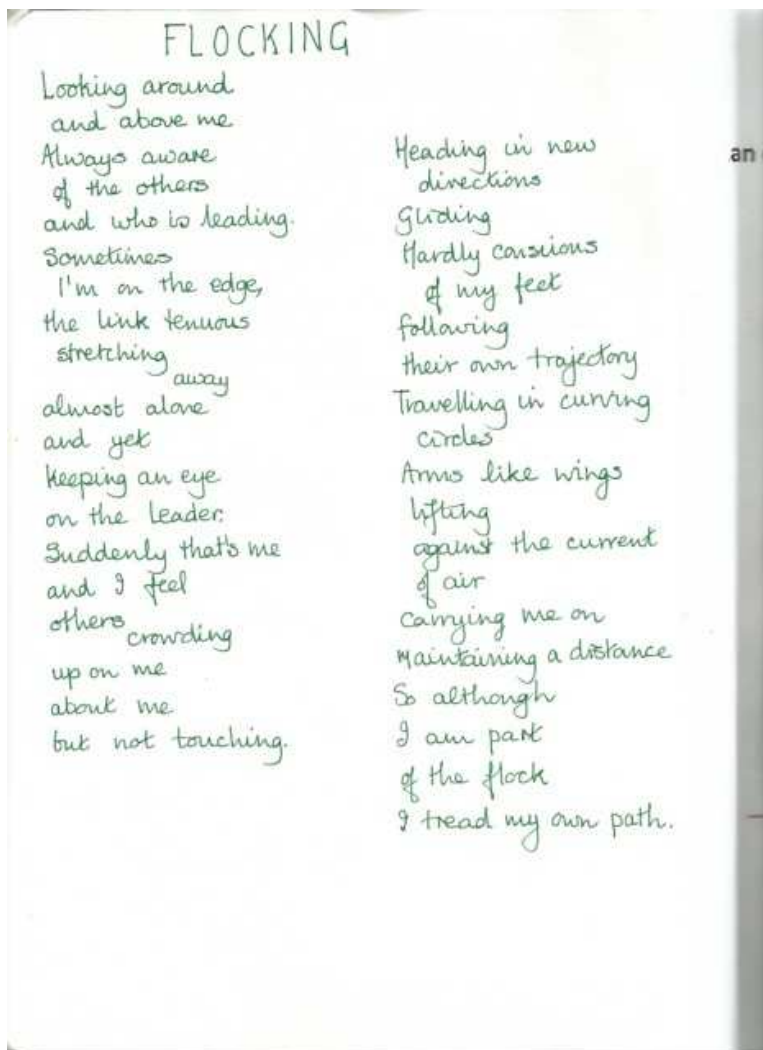 FLOCKING
Looking around
and above me
Always aware
of the others
and who is leading.
Sometimes
I'm on the edge,
the link tenuous
stretching
away
almost alone
and yet
keeping an eye
on the leader.
Suddenly that's me
and I feel
others
crowding
up on me
about me
but not touching.
Heading in new
directions
Gliding
Hardly consuious
of my feet
following
their own trajectory
Travelling in curving
circles
Arms like wings
lifting
against the current
of air
carrying me on
Maintaining a distance
So although
I am part
of the flock
I tread my own path.
an